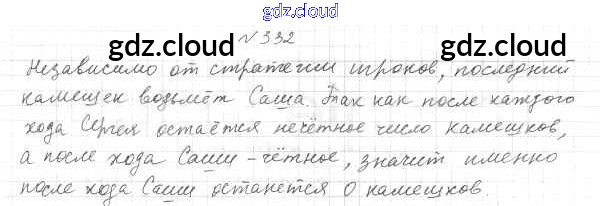 gdz.cloud
№ 332
gdz.cloud gdz.cloud
Независимо от стратегии игроков, последний
камешек возьмёт Саша. Так как после каждого
хода Сергея остаётся нечётное число камешков,
а после хода Саши - чётное, значит именно
после хода Саши останется 0 камешков.
gdz.cloud gdz.cloud